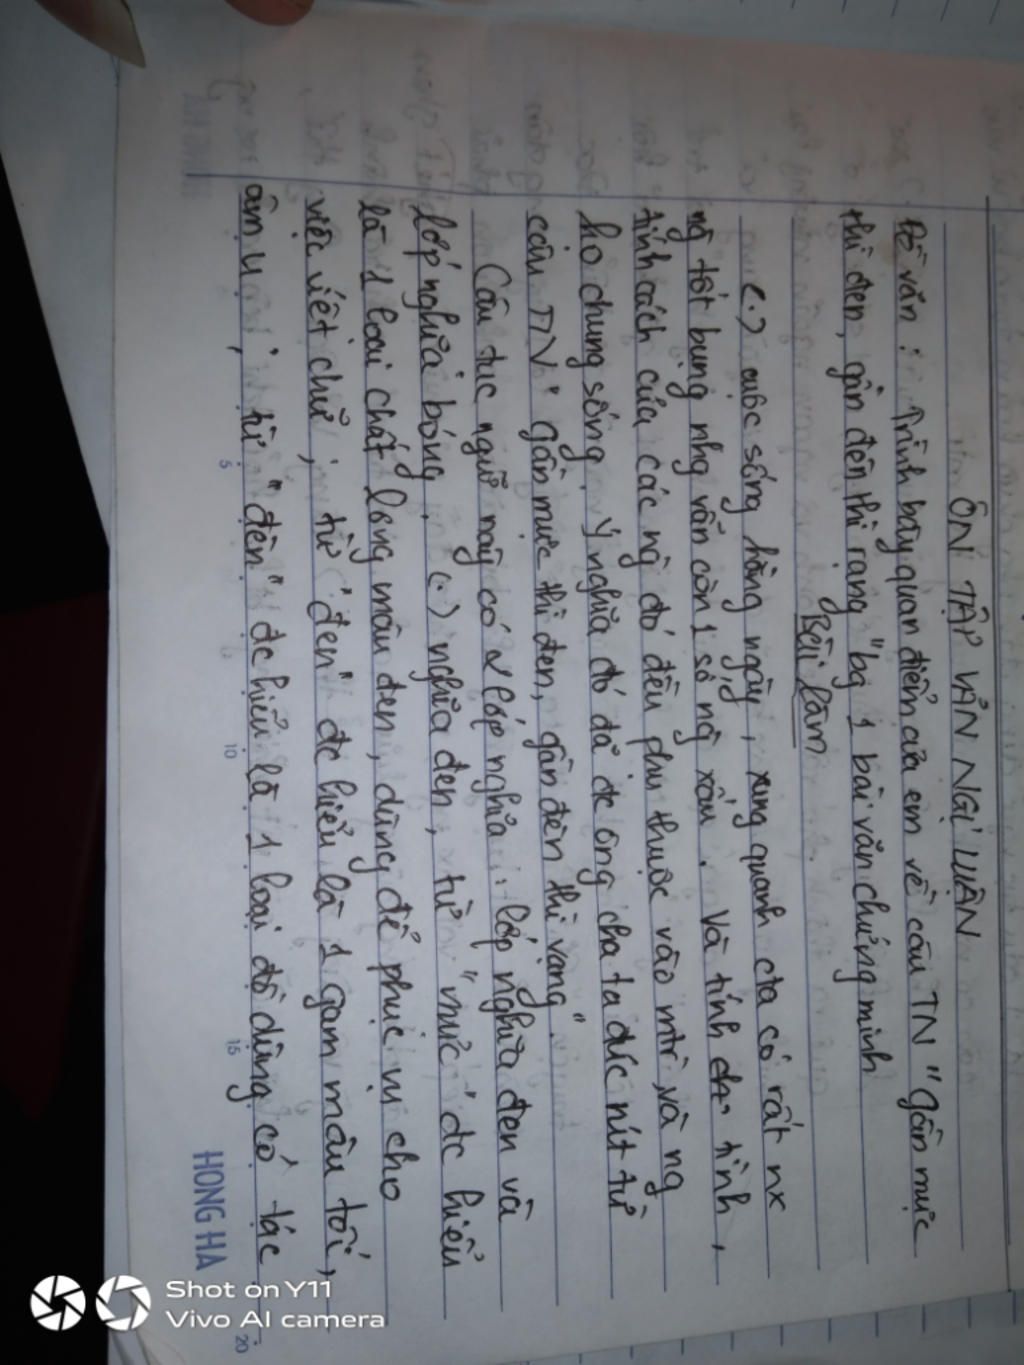 ÔN TẬP VĂN NGHỊ LUẬN
Đề văn: Trình bày quan điểm của em về câu TN "gần mực
thì đen, gần đèn thì rạng" bg 1 bài văn chứng minh
Bài làm
(.) cuộc sống hằng ngày, xung quanh cta có rất nx
ng tốt bụng nhg vẫn còn 1 số ng xấu. Và tính tình,
tính cách của các ng đó đều phụ thuộc vào mtr và ng
họ chung sống. Ý nghĩa đó đã đc ông cha ta đúc nít từ
câu TN: gần mực thì đen, gần đèn thì rạng"
Câu tục ngữ này có 2 lớp nghĩa: lớp nghĩa đen và
lớp nghĩa bóng. (.) nghĩa đen, từ "mực" đc hiểu
là 1 loại chất lỏng màu đen, dùng để phục vụ cho
việc viết chữ; từ "đen" đc hiểu là 1 gam màu tối,
âm u; từ "đèn" đc hiểu là 1 loại đồ dùng có tác
HONG HA
5
10
15
20
Shot on Y11
Vivo AI camera